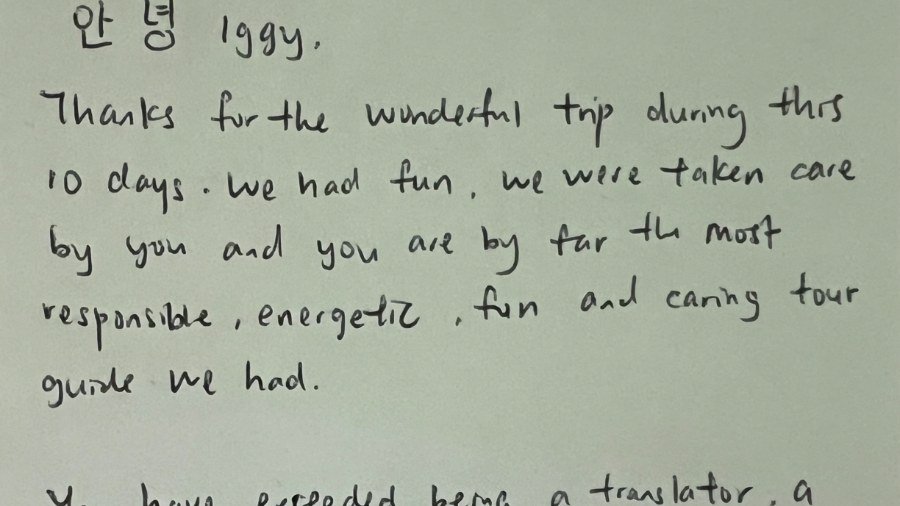 안녕 Iggy.
Thanks for the wonderful trip during this
10 days. We had fun, we were taken care
by you and you are by far the most
responsible, energetic, fun and caring tour
guide we had.
have exceeded being a translator, a